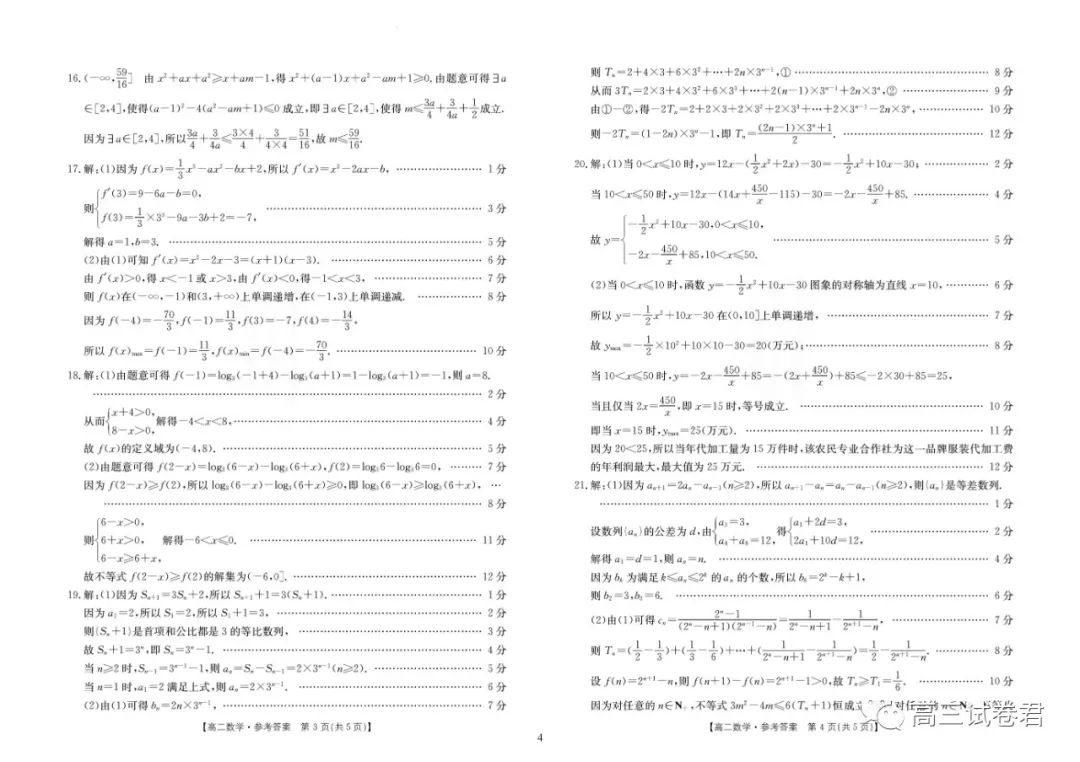 16.(-∞,59/16] 由 x²+ax+a²≥x+am-1,得 x²+(a-1)x+a²-am+1≥0.由题意可得∃a
∈[2,4],使得(a-1)²-4(a²-am+1)≤0 成立,即∃a∈[2,4],使得 m≤3a/4+3/4a+1/2成立.
因为∃a∈[2,4],所以3a/4+3/4a≤3×4/4+3/4×4=51/16,故 m≤59/16.
17.解:(1)因为 f(x)=1/3x³-ax²-bx+2,所以 f′(x)=x²-2ax-b, 1分
则{f′(3)=9-6a-b=0,
f(3)=1/3×3³-9a-3b+2=-7, 3分
解得 a=1,b=3. 5分
(2)由(1)可知 f′(x)=x²-2x-3=(x+1)(x-3). 6分
由 f′(x)>0,得 x<-1 或 x>3,由 f′(x)<0,得-1<x<3, 7分
则 f(x)在(-∞,-1)和(3,+∞)上单调递增,在(-1,3)上单调递减. 8分
因为 f(-4)=-70/3,f(-1)=11/3,f(3)=-7,f(4)=-14/3,
所以 f(x)max=f(-1)=11/3,f(x)min=f(-4)=-70/3. 10分
18.解:(1)由题意可得 f(-1)=log₃(-1+4)-log₃(a+1)=1-log₃(a+1)=-1,则 a=8.
2分
从而{x+4>0,
8-x>0,解得-4<x<8, 4分
故 f(x)的定义域为(-4,8). 5分
(2)由题意可得 f(2-x)=log₃(6-x)-log₃(6+x),f(2)=log₃6-log₃6=0, 7分
因为 f(2-x)≥f(2),所以 log₃(6-x)-log₃(6+x)≥0,即 log₃(6-x)≥log₃(6+x),
8分
则{6-x>0,
6+x>0, 解得-6<x≤0. 11分
6-x≥6+x,
故不等式 f(2-x)≥f(2)的解集为(-6,0]. 12分
19.解:(1)因为 Sₙ₊₁=3Sₙ+2,所以 Sₙ₊₁+1=3(Sₙ+1). 1分
因为 a₁=2,所以 S₁=2,所以 S₁+1=3, 2分
则{Sₙ+1}是首项和公比都是 3 的等比数列, 3分
故 Sₙ+1=3ⁿ,即 Sₙ=3ⁿ-1. 4分
当 n≥2 时,Sₙ₋₁=3ⁿ⁻¹-1,则 aₙ=Sₙ-Sₙ₋₁=2×3ⁿ⁻¹(n≥2). 5分
当 n=1 时,a₁=2 满足上式,则 aₙ=2×3ⁿ⁻¹. 6分
(2)由(1)可得 bₙ=2n×3ⁿ⁻¹, 7分
【高二数学·参考答案 第 3 页(共 5 页)】
则 Tₙ=2+4×3+6×3²+…+2n×3ⁿ⁻¹,① 8分
从而 3Tₙ=2×3+4×3²+6×3³+…+2(n-1)×3ⁿ⁻¹+2n×3ⁿ,② 9分
由①-②,得-2Tₙ=2+2×3+2×3²+2×3³+…+2×3ⁿ⁻¹-2n×3ⁿ, 10分
则-2Tₙ=(1-2n)×3ⁿ-1,即 Tₙ=(2n-1)×3ⁿ+1/2. 12分
20.解:(1)当 0<x≤10 时,y=12x-(1/2x²+2x)-30=-1/2x²+10x-30; 2分
当 10<x≤50 时,y=12x-(14x+450/x-115)-30=-2x-450/x+85. 4分
故 y={-1/2x²+10x-30,0<x≤10,
-2x-450/x+85,10<x≤50. 5分
(2)当 0<x≤10 时,函数 y=-1/2x²+10x-30 图象的对称轴为直线 x=10, 6分
所以 y=-1/2x²+10x-30 在(0,10]上单调递增, 7分
故 ymax=-1/2×10²+10×10-30=20(万元); 8分
当 10<x≤50 时,y=-2x-450/x+85=-(2x+450/x)+85≤-2×30+85=25,
当且仅当 2x=450/x,即 x=15 时,等号成立. 10分
即当 x=15 时,ymax=25(万元). 11分
因为 20<25,所以当年代加工量为 15 万件时,该农民专业合作社为这一品牌服装代加工费
的年利润最大,最大值为 25 万元. 12分
21.解:(1)因为 aₙ₊₁=2aₙ-aₙ₋₁(n≥2),所以 aₙ₊₁-aₙ=aₙ-aₙ₋₁(n≥2),则{aₙ}是等差数列.
1分
设数列{aₙ}的公差为 d,由{a₃=3,
a₄+a₈=12,得{a₁+2d=3,
2a₁+10d=12, 2分
解得 a₁=d=1,则 aₙ=n. 4分
因为 bₖ 为满足 k≤aₙ≤2ᵏ 的 aₙ 的个数,所以 bₖ=2ᵏ-k+1,
则 b₂=3,b₃=6. 6分
(2)由(1)可得 cₙ=2ⁿ-1/(2ⁿ-n+1)(2ⁿ⁺¹-n)=1/2ⁿ-n+1-1/2ⁿ⁺¹-n, 7分
则 Tₙ=(1/2-1/3)+(1/3-1/6)+…+(1/2ⁿ-n+1-1/2ⁿ⁺¹-n)=1/2-1/2ⁿ⁺¹-n. 8分
设 f(n)=2ⁿ⁺¹-n,则 f(n+1)-f(n)=2ⁿ⁺¹-1>0,故 Tₙ≥T₁=1/6. 10分
因为对任意的 n∈N₊,不等式 3m²-4m≤6(Tₙ+1)恒成立
【高二数学·参考答案 第 4 页(共 5 页)】
高三试卷君
4